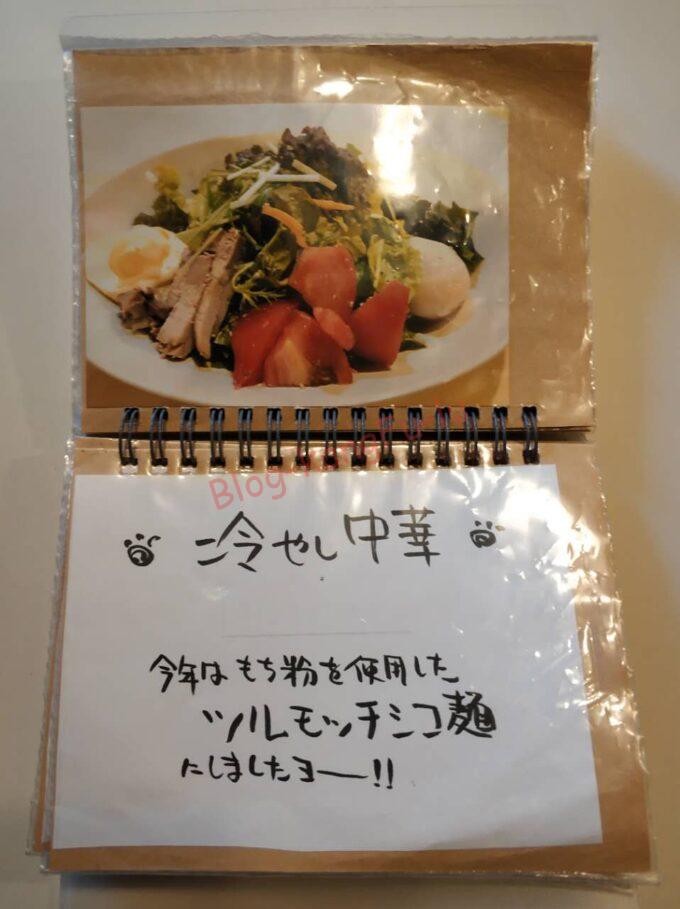 冷やし中華
今年はもち粉を使用した
ツルモッチシコ麺
にしましたヨー!!